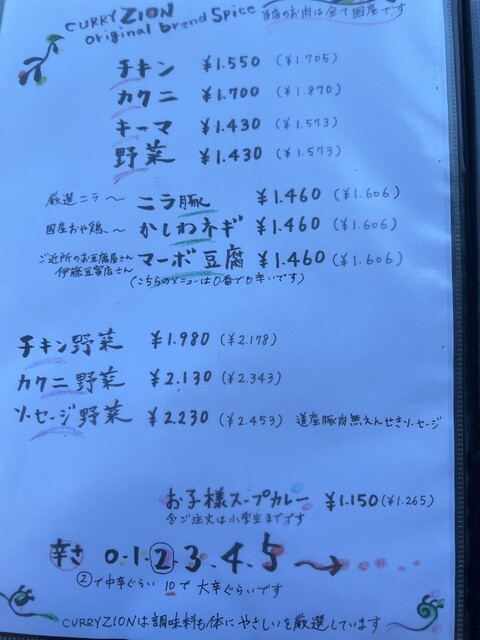 CURRY ZION 当店のお肉は全て国産です
original brend spice
チキン ¥1.550 (¥1.705)
カクニ ¥1.700 (¥1.870)
キーマ ¥1.430 (¥1.573)
野菜 ¥1.430 (¥1.573)
厳選ニラ〜 ニラ豚 ¥1.460 (¥1.606)
国産おや鶏〜 かしわネギ ¥1.460 (¥1.606)
ご近所のお豆腐屋さん
伊藤豆冨店さん マーボ豆腐 ¥1.460 (¥1.606)
(こちらのメニューは0番でも辛いです)
チキン野菜 ¥1.980 (¥2.178)
カクニ野菜 ¥2.130 (¥2.343)
ソーセージ野菜 ¥2.230 (¥2.453) 道産豚肉無えんせきソーセージ
お子様スープカレー ¥1.150 (¥1.265)
※ご注文は小学生までです
辛さ 0.1.2.3.4.5 →
②で中辛ぐらい 10で大辛ぐらいです
CURRY ZIONは調味料も体にやさしいを厳選しています